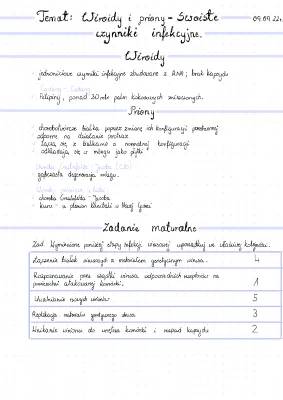 Temat: Wiroidy i priony - swoiste 09.09.22r.
czynniki infekcyjne.
Wiroidy
- jednoniciowe czynniki infekcyjne zbudowane z RNA; brak kapsydu
Filipiny, ponad 30 mln palm kokosowych zniszczonych.
Priony
- chorobotwórcze białka poprzez zmianę ich konfiguracji przestrzennej
odporne na działanie proteaz
- łączą się z białkami o normalnej konfiguracji
- odkładają się w mózgu jako płytki
Choroba Creutzfeldta - Jacoba (CJD)
gąbczasta degeneracja mózgu.
- choroba Creutzfeldta - Jacoba
- kuru - u plemion
Zadanie maturalne
Zad. Wymienione poniżej etapy infekcji wirusowej uporządkuj we właściwej kolejności.
Łączenie białek wirusowych z materiałem genetycznym wirusa. 4
Rozpoznawanie przez cząstki wirusa odpowiednich receptorów na
powierzchni atakowanej komórki. 1
Uwalnianie nowych wirionów. 5
Replikacja materiału genetycznego wirusa. 3
Wnikanie wirionu do wnętrza komórki i rozpad kapsydu 2